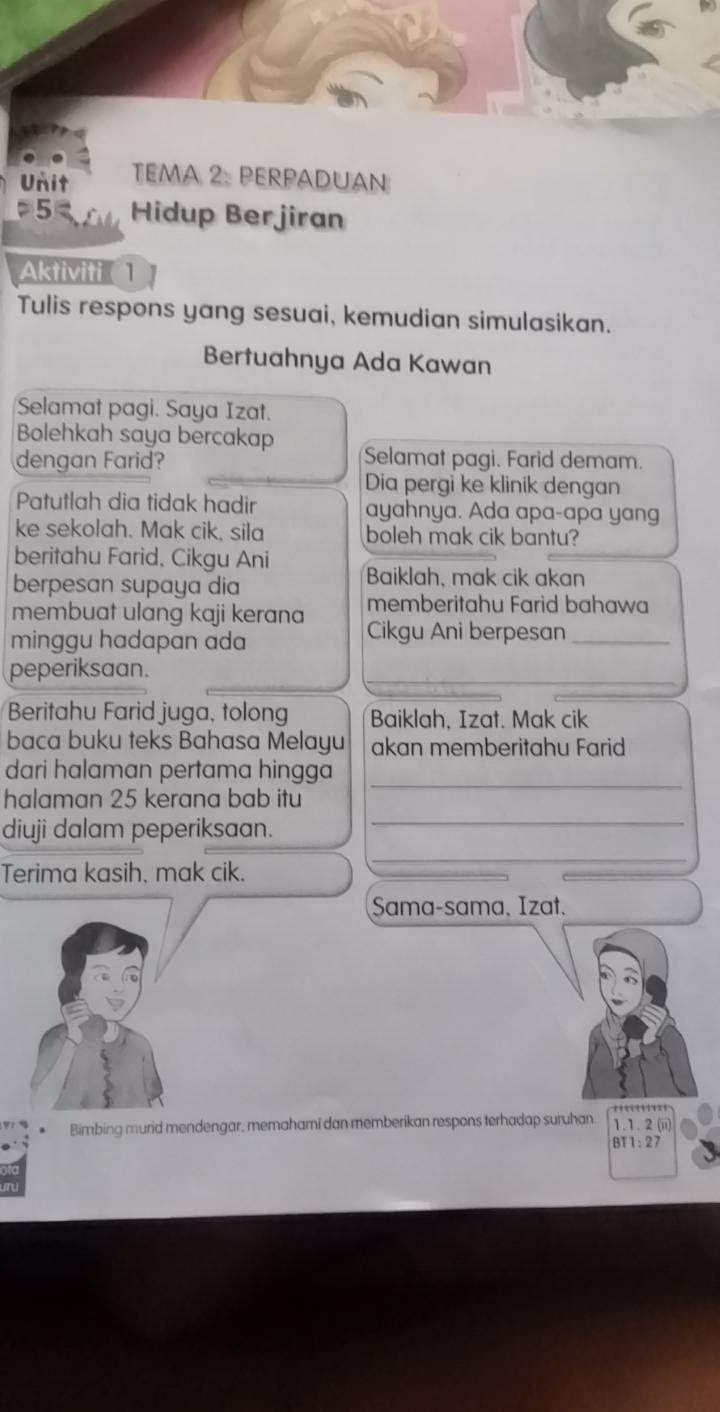 Unit
5
TEMA 2: PERPADUAN
Hidup Berjiran
Aktiviti 1
Tulis respons yang sesuai, kemudian simulasikan.
Bertuahnya Ada Kawan
Selamat pagi. Saya Izat.
Bolehkah saya bercakap
dengan Farid?
Selamat pagi. Farid demam.
Dia pergi ke klinik dengan
ayahnya. Ada apa-apa yang
boleh mak cik bantu?
Patutlah dia tidak hadir
ke sekolah. Mak cik, sila
beritahu Farid, Cikgu Ani
berpesan supaya dia
membuat ulang kaji kerana
minggu hadapan ada
peperiksaan.
Baiklah, mak cik akan
memberitahu Farid bahawa
Cikgu Ani berpesan
Beritahu Farid juga, tolong
baca buku teks Bahasa Melayu
dari halaman pertama hingga
halaman 25 kerana bab itu
diuji dalam peperiksaan.
Baiklah, Izat. Mak cik
akan memberitahu Farid
Terima kasih, mak cik.
Sama-sama, Izat.
Bimbing murid mendengar, memahami dan memberikan respons terhadap suruhan
1.1. 2 (ii)
BT1: 27
ota
uru